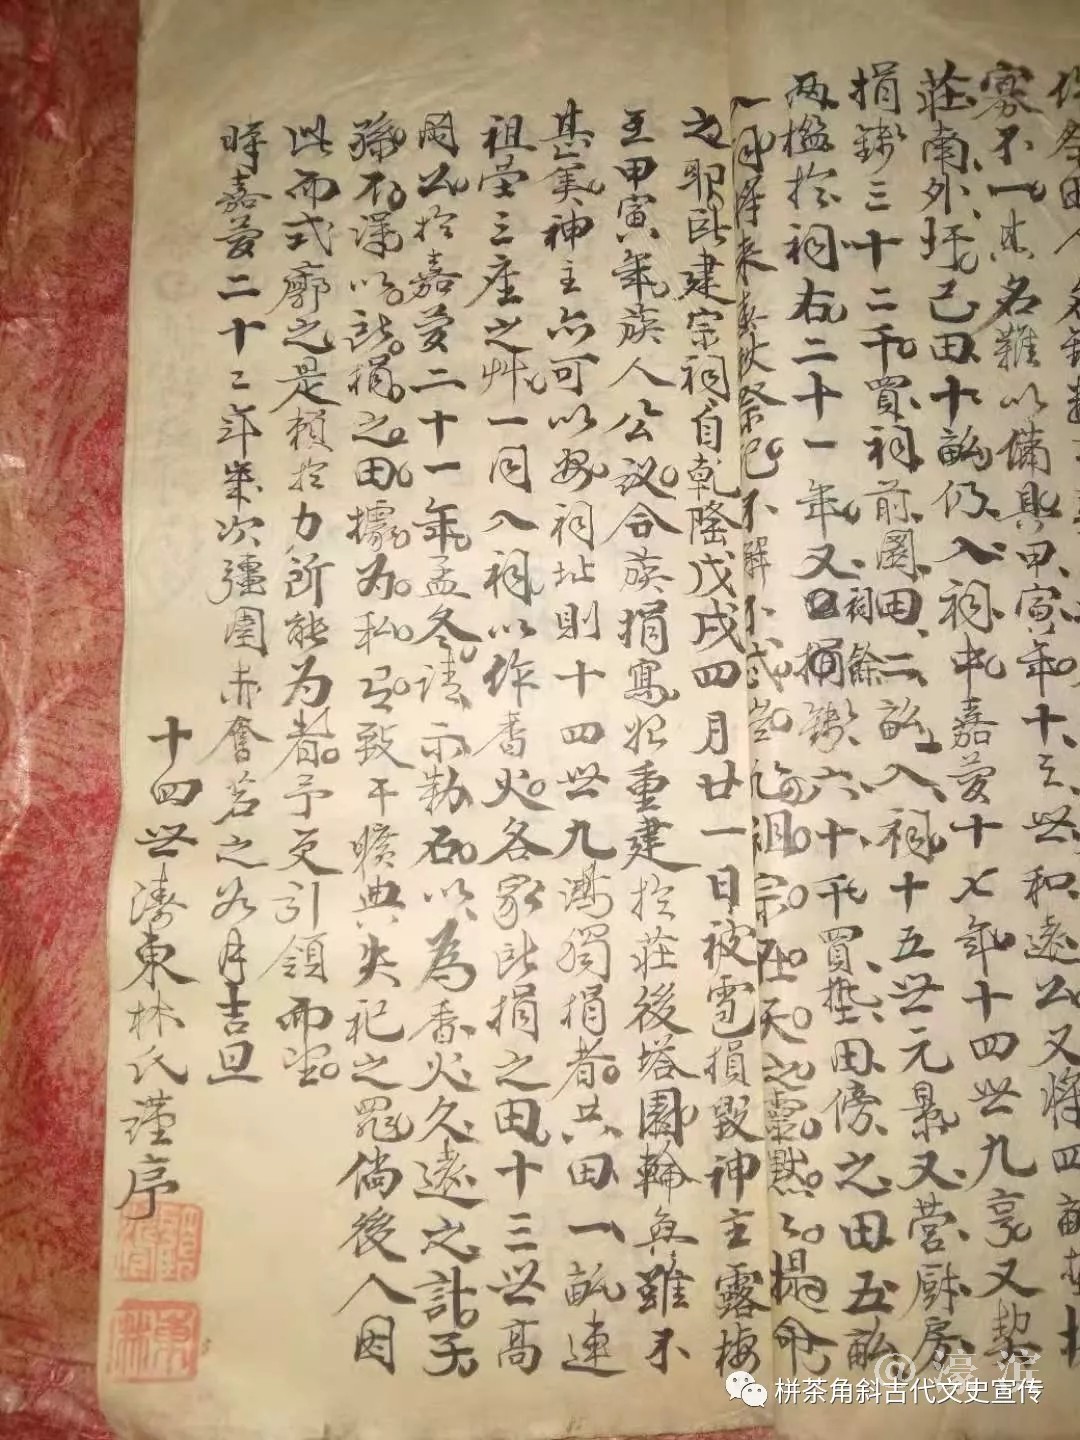 寡不一其名難以備具甲寅年十三世和遠公又將四畝
莊南外圩己田十畝仍入祠中嘉慶十七年十四世九亭又勢
捐錢三十二千買祠前園田二畝入祠十五世元景又營厨房
兩檻於祠右二十一年又捐錢六十千買墊田傍之田五畝
祠餘
祭祀不懈不忒祖宗在天之靈默
之耶此建宗祠自乾隆戊戌四月廿一日被雹損毀神主露棲
至甲寅年族人公议合族捐寫始重建於莊後塔園輪奂雖不
甚美神主亦可以妥祠址則十四世九獨捐者共田一畝連
祖塋三座之艸一同入祠以作香火各家所捐之田十三世高
岡公於嘉慶二十一年孟冬请示勒石以為香火久遠之計子
孫不得以所捐之田據為私己致干曠典失祀之罪倘後人因
此而式廓之是賴於力所能为者予更引領而望
時嘉慶二十二年歲次彊圉赤奮若之如月吉旦
十四世濤東林氏謹序
東林
@濠滨
栟茶角斜古代文史宣传